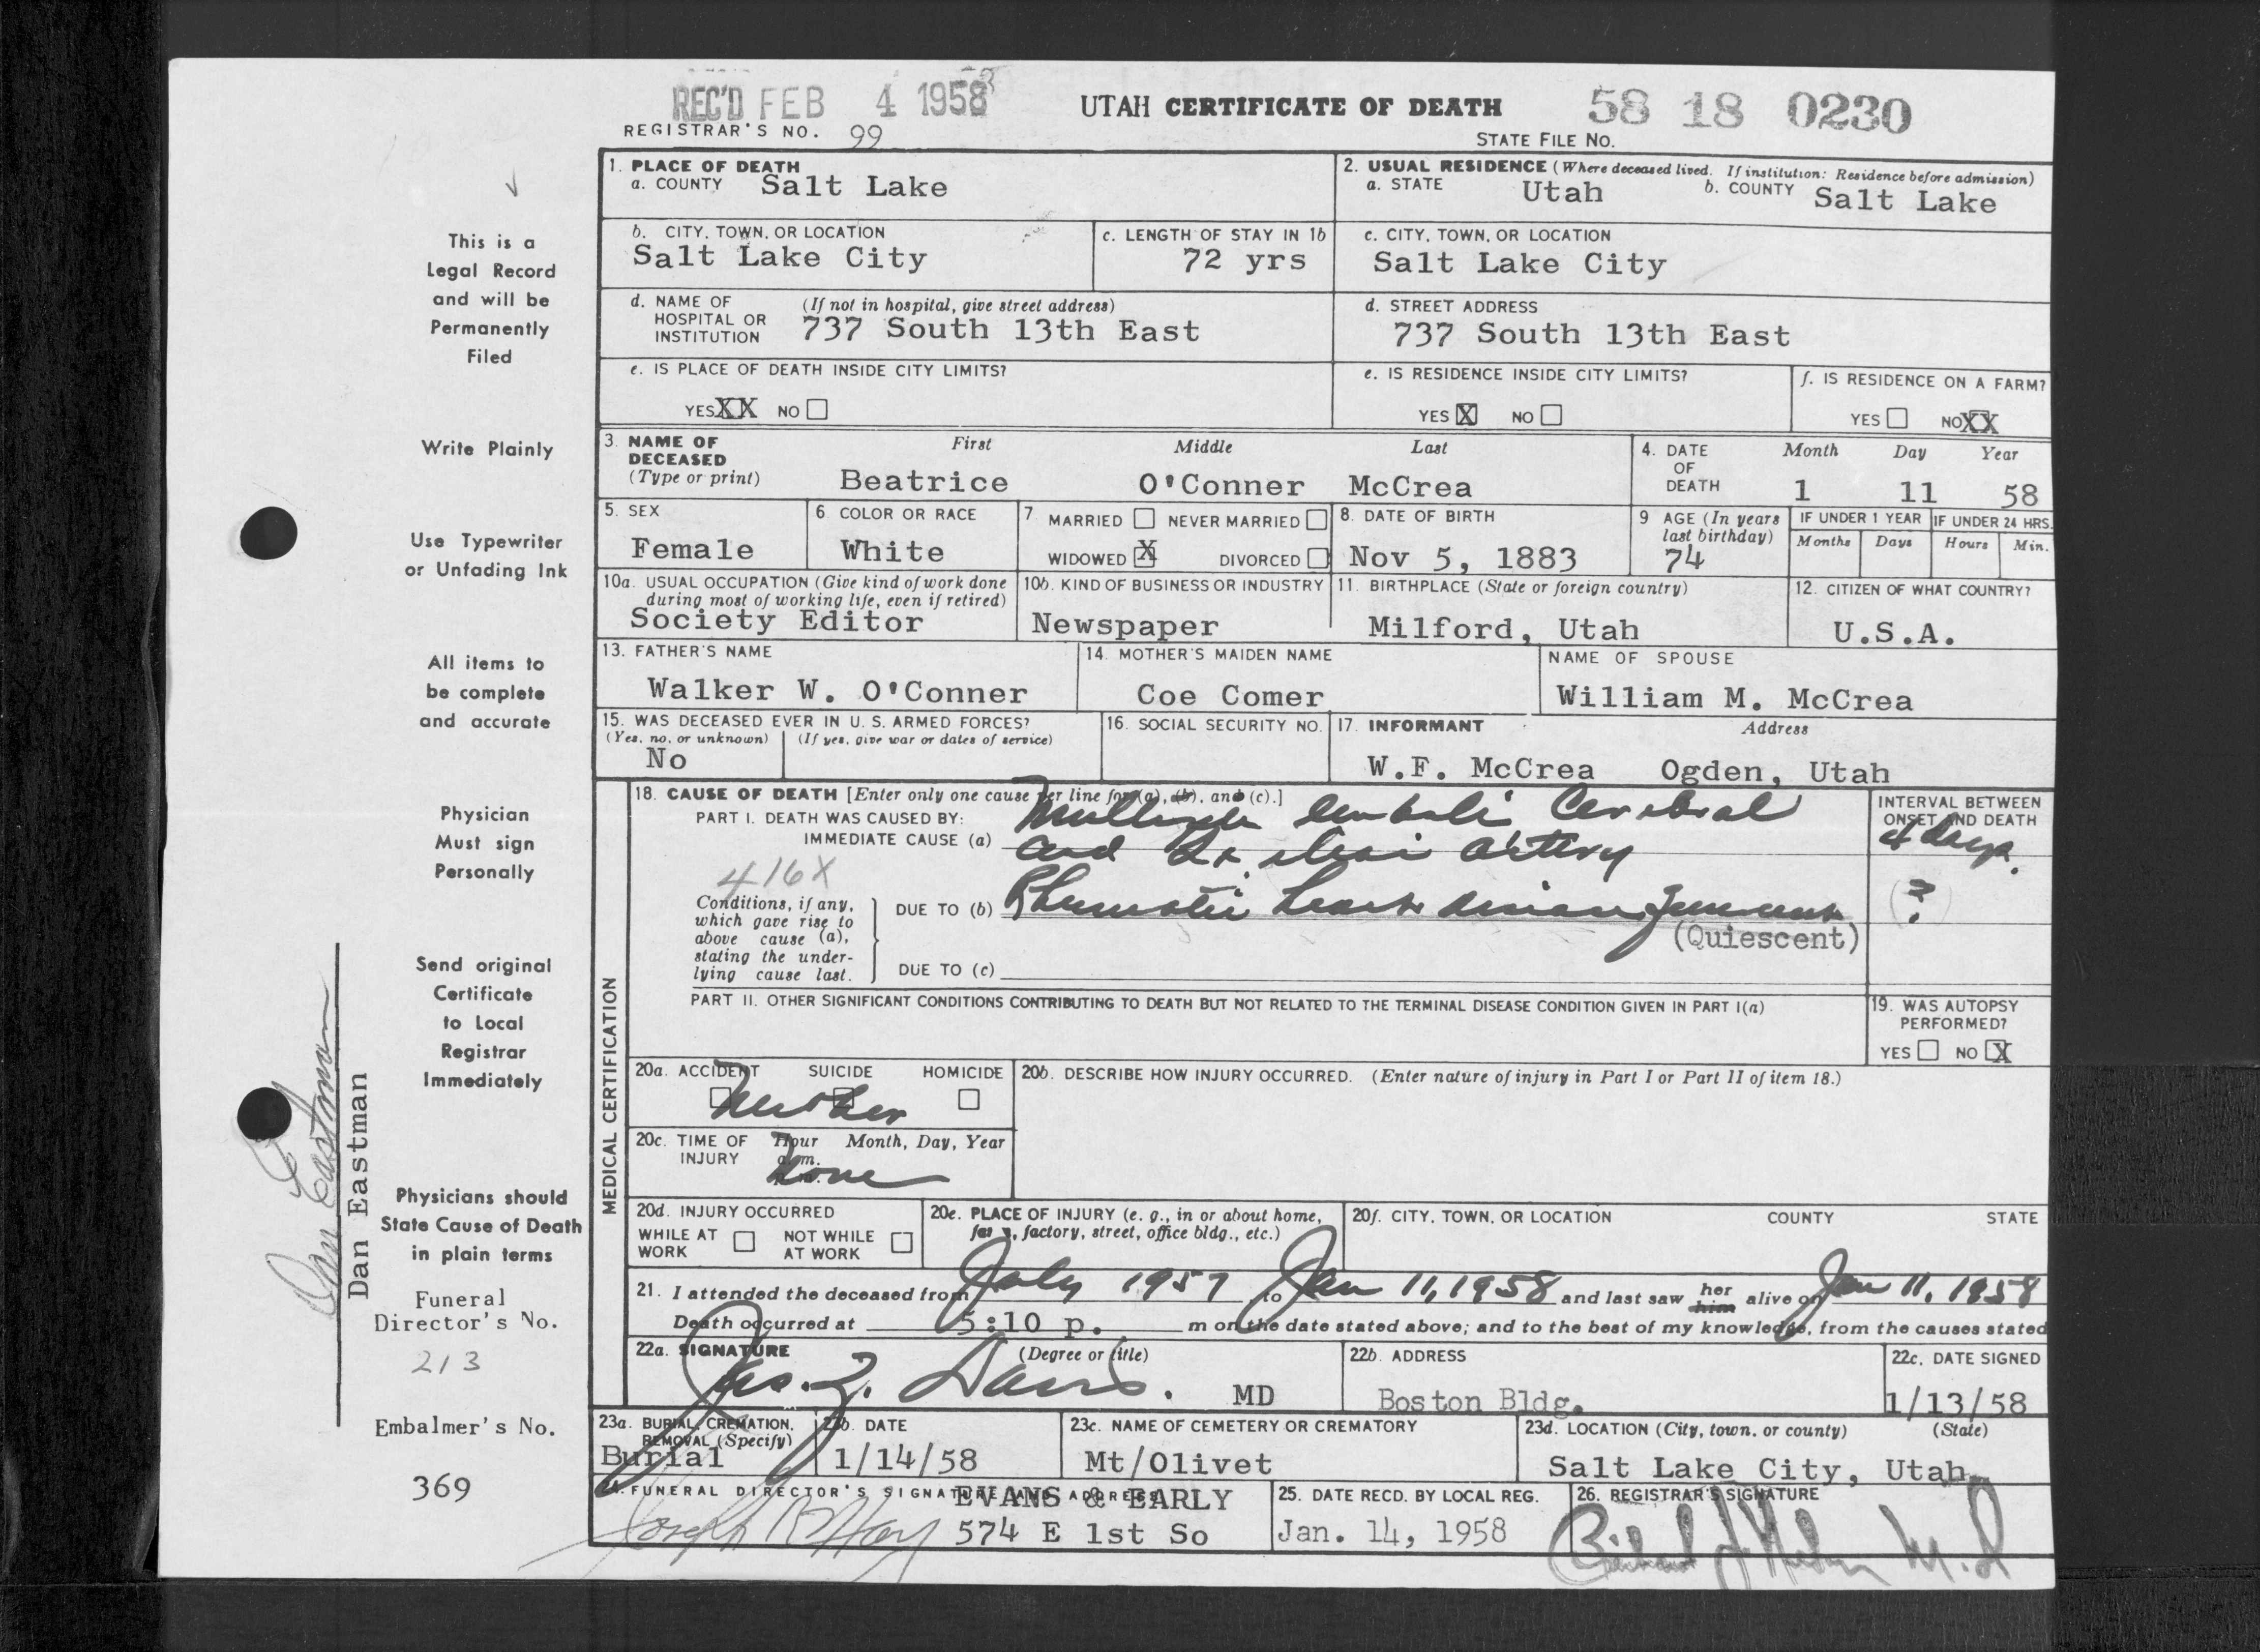 REC'D FEB 4 1958
UTAH CERTIFICATE OF DEATH
58 18 0230
REGISTRAR'S NO. 99
STATE FILE NO.
This is a
Legal Record
and will be
Permanently
Filed
Write Plainly
Use Typewriter
or Unfading Ink
All items to
be complete
and accurate
Physician
Must sign
Personally
Send original
Certificate
to Local
Registrar
Immediately
Physicians should
State Cause of Death
in plain terms
Funeral
Director's No.
213
Embalmer's No.
369
Dan Eastman
Dan Eastman
1. PLACE OF DEATH
a. COUNTY Salt Lake
2. USUAL RESIDENCE (Where deceased lived. If institution: Residence before admission)
a. STATE Utah b. COUNTY Salt Lake
b. CITY, TOWN, OR LOCATION
Salt Lake City
c. LENGTH OF STAY IN 1b
72 yrs
c. CITY, TOWN, OR LOCATION
Salt Lake City
d. NAME OF HOSPITAL OR INSTITUTION (If not in hospital, give street address)
737 South 13th East
d. STREET ADDRESS
737 South 13th East
e. IS PLACE OF DEATH INSIDE CITY LIMITS?
YES XX NO
e. IS RESIDENCE INSIDE CITY LIMITS?
YES X NO
f. IS RESIDENCE ON A FARM?
YES NO XX
3. NAME OF DECEASED (Type or print)
First Middle Last
Beatrice O'Conner McCrea
4. DATE OF DEATH
Month Day Year
1 11 58
5. SEX
Female
6. COLOR OR RACE
White
7. MARRIED NEVER MARRIED
WIDOWED X DIVORCED
8. DATE OF BIRTH
Nov 5, 1883
9. AGE (In years last birthday)
74
IF UNDER 1 YEAR IF UNDER 24 HRS.
Months Days Hours Min.
10a. USUAL OCCUPATION (Give kind of work done during most of working life, even if retired)
Society Editor
10b. KIND OF BUSINESS OR INDUSTRY
Newspaper
11. BIRTHPLACE (State or foreign country)
Milford, Utah
12. CITIZEN OF WHAT COUNTRY?
U.S.A.
13. FATHER'S NAME
Walker W. O'Conner
14. MOTHER'S MAIDEN NAME
Coe Comer
NAME OF SPOUSE
William M. McCrea
15. WAS DECEASED EVER IN U. S. ARMED FORCES?
(Yes, no, or unknown) (If yes, give war or dates of service)
No
16. SOCIAL SECURITY NO.
17. INFORMANT Address
W.F. McCrea Ogden, Utah
MEDICAL CERTIFICATION
18. CAUSE OF DEATH [Enter only one cause per line for (a), (b), and (c).]
PART I. DEATH WAS CAUSED BY:
IMMEDIATE CAUSE (a) Multiple emboli Cerebral
and Rt. iliac artery
INTERVAL BETWEEN ONSET AND DEATH
4 days.
416X
Conditions, if any, which gave rise to above cause (a), stating the underlying cause last.
DUE TO (b) Rheumatic heart disease,
(Quiescent)
(?)
DUE TO (c)
PART II. OTHER SIGNIFICANT CONDITIONS CONTRIBUTING TO DEATH BUT NOT RELATED TO THE TERMINAL DISEASE CONDITION GIVEN IN PART I(a)
19. WAS AUTOPSY PERFORMED?
YES NO X
20a. ACCIDENT SUICIDE HOMICIDE
Neither
20b. DESCRIBE HOW INJURY OCCURRED. (Enter nature of injury in Part I or Part II of item 18.)
20c. TIME OF INJURY Hour Month, Day, Year
a.m.
None
20d. INJURY OCCURRED
WHILE AT WORK NOT WHILE AT WORK
20e. PLACE OF INJURY (e. g., in or about home, farm, factory, street, office bldg., etc.)
20f. CITY, TOWN, OR LOCATION COUNTY STATE
21. I attended the deceased from July 1957 to Jan 11, 1958 and last saw her him alive on Jan 11, 1958
Death occurred at 5:10 p. m on the date stated above; and to the best of my knowledge, from the causes stated
22a. SIGNATURE (Degree or title)
Jas. Z. Davis. MD
22b. ADDRESS
Boston Bldg.
22c. DATE SIGNED
1/13/58
23a. BURIAL, CREMATION, REMOVAL (Specify)
Burial
23b. DATE
1/14/58
23c. NAME OF CEMETERY OR CREMATORY
Mt/Olivet
23d. LOCATION (City, town, or county) (State)
Salt Lake City, Utah
24. FUNERAL DIRECTOR'S SIGNATURE AND ADDRESS
EVANS & EARLY
574 E 1st So
25. DATE RECD. BY LOCAL REG.
Jan. 14, 1958
26. REGISTRAR'S SIGNATURE